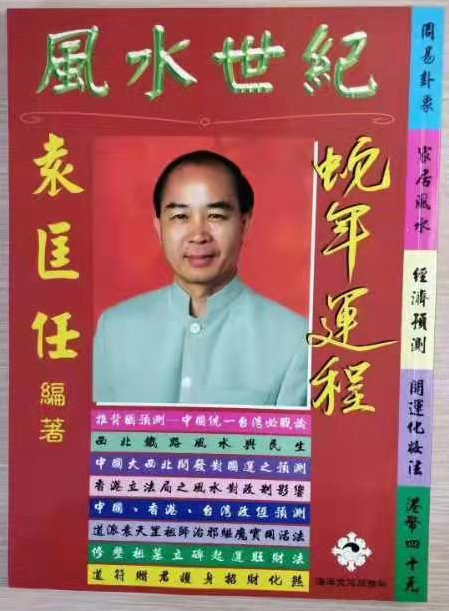 風水世紀
袁匡任
編著
蛇年運程
周易卦象
家居風水
經濟預測
開運化妝法
港幣四十元
推背圖預測—中國統一台灣必戰論
西北鐵路風水與民生
中國大西北開發對國運之預測
香港立法局之風水對政制影響
中國、香港、台灣政經預測
道派袁天罡祖師治邪驅魔實用活法
修整祖墓立碑起運旺財法
道符贈君護身招財化煞